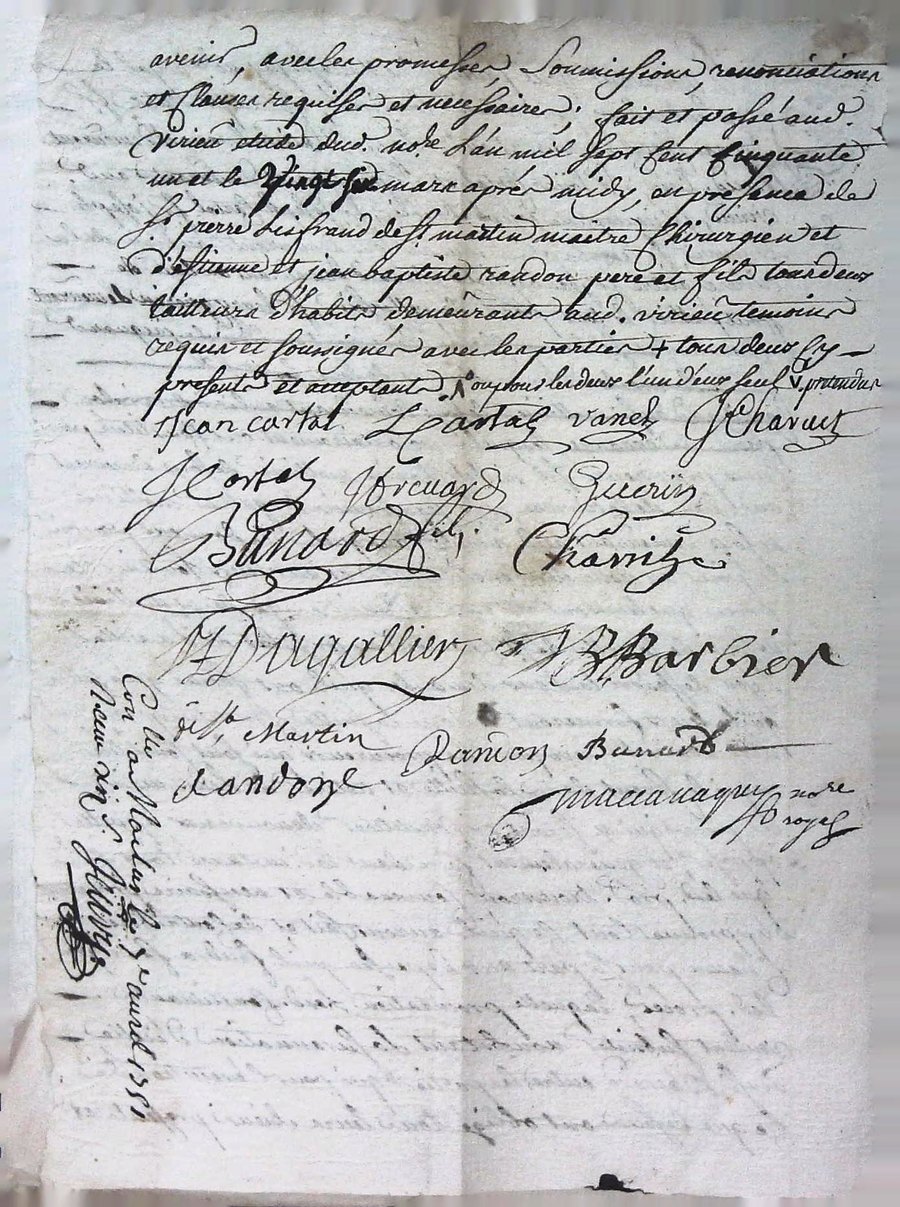 avenir, avec les promesses, soumissions, renonciations
et Clauses requises et necessaires; fait et passé aud.
virieu etude dud. nore. L'an mil sept cent cinquante
un et le vingt six mars aprés midy, en présence de
Sr. pierre Lisfrand de St. martin maitre Chirurgien et
d'estienne et jean baptiste randon pere et fils tous deux
tailleurs d'habits demeurants aud. virieu temoins
requis et soussignés avec les parties + tous deux Cy
presents et acceptants ou pour les deux l'un d'eux seul
Jean cartal Cartal vanel JCharvet
JCortal guerin
Bunard fils.
Dagallier Barbier
de St. Martin
Randon Bunard
randon nore
royal
Con lle au
le 7e avril 1751
Reçu six s.